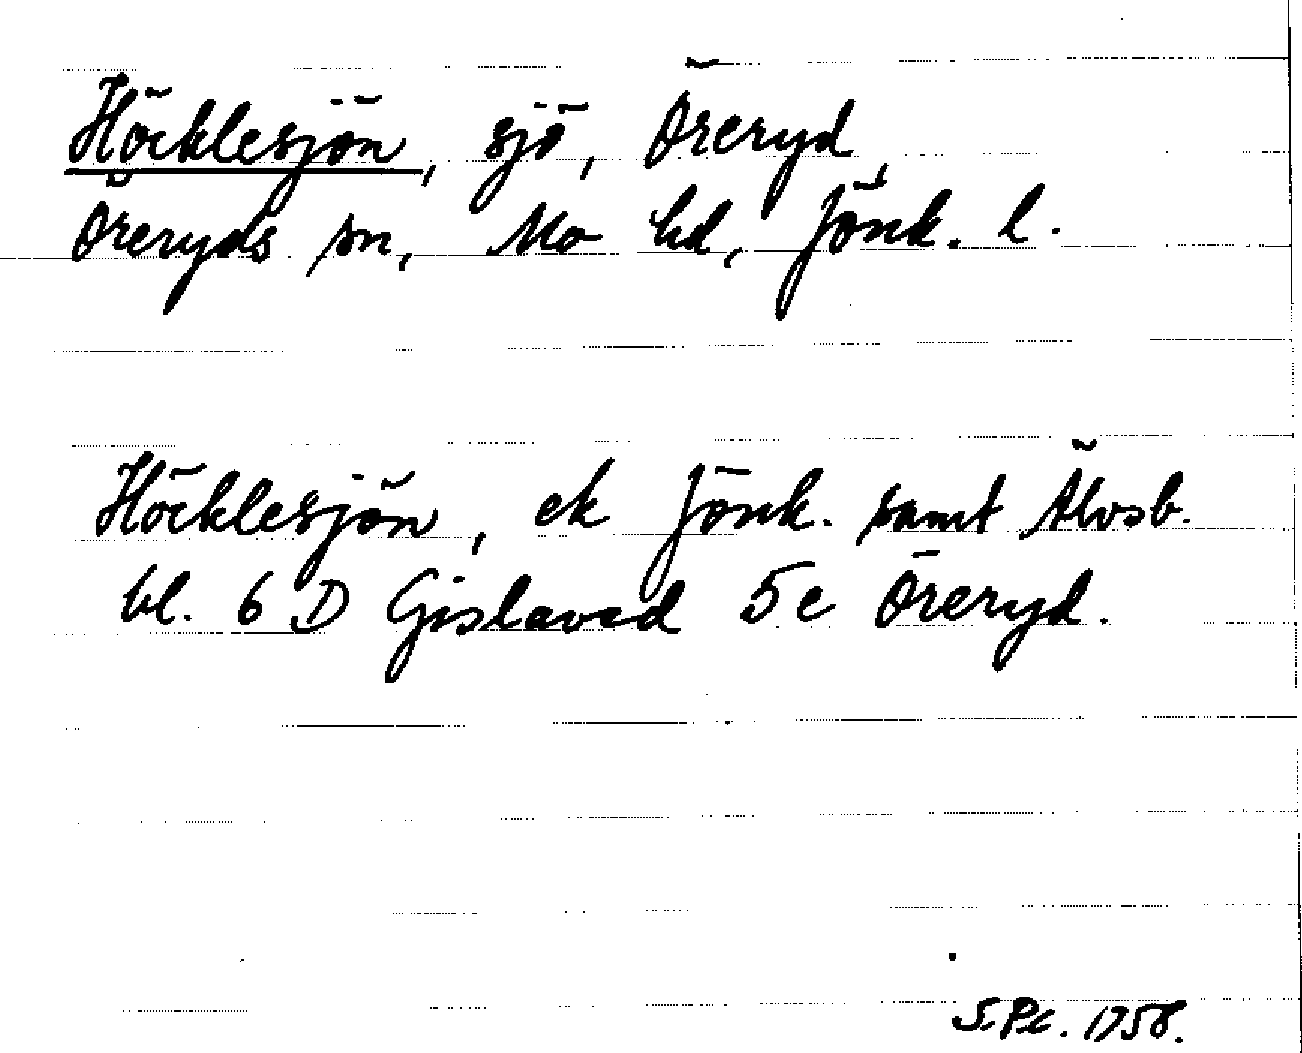 Höcklesjön, sjö, Öreryd,
Öreryds sn, Mo hd, Jönk. l.
Höcklesjön, ek Jönk. samt Älvsb.
bl. 6 D Gislaved 5c Öreryd.